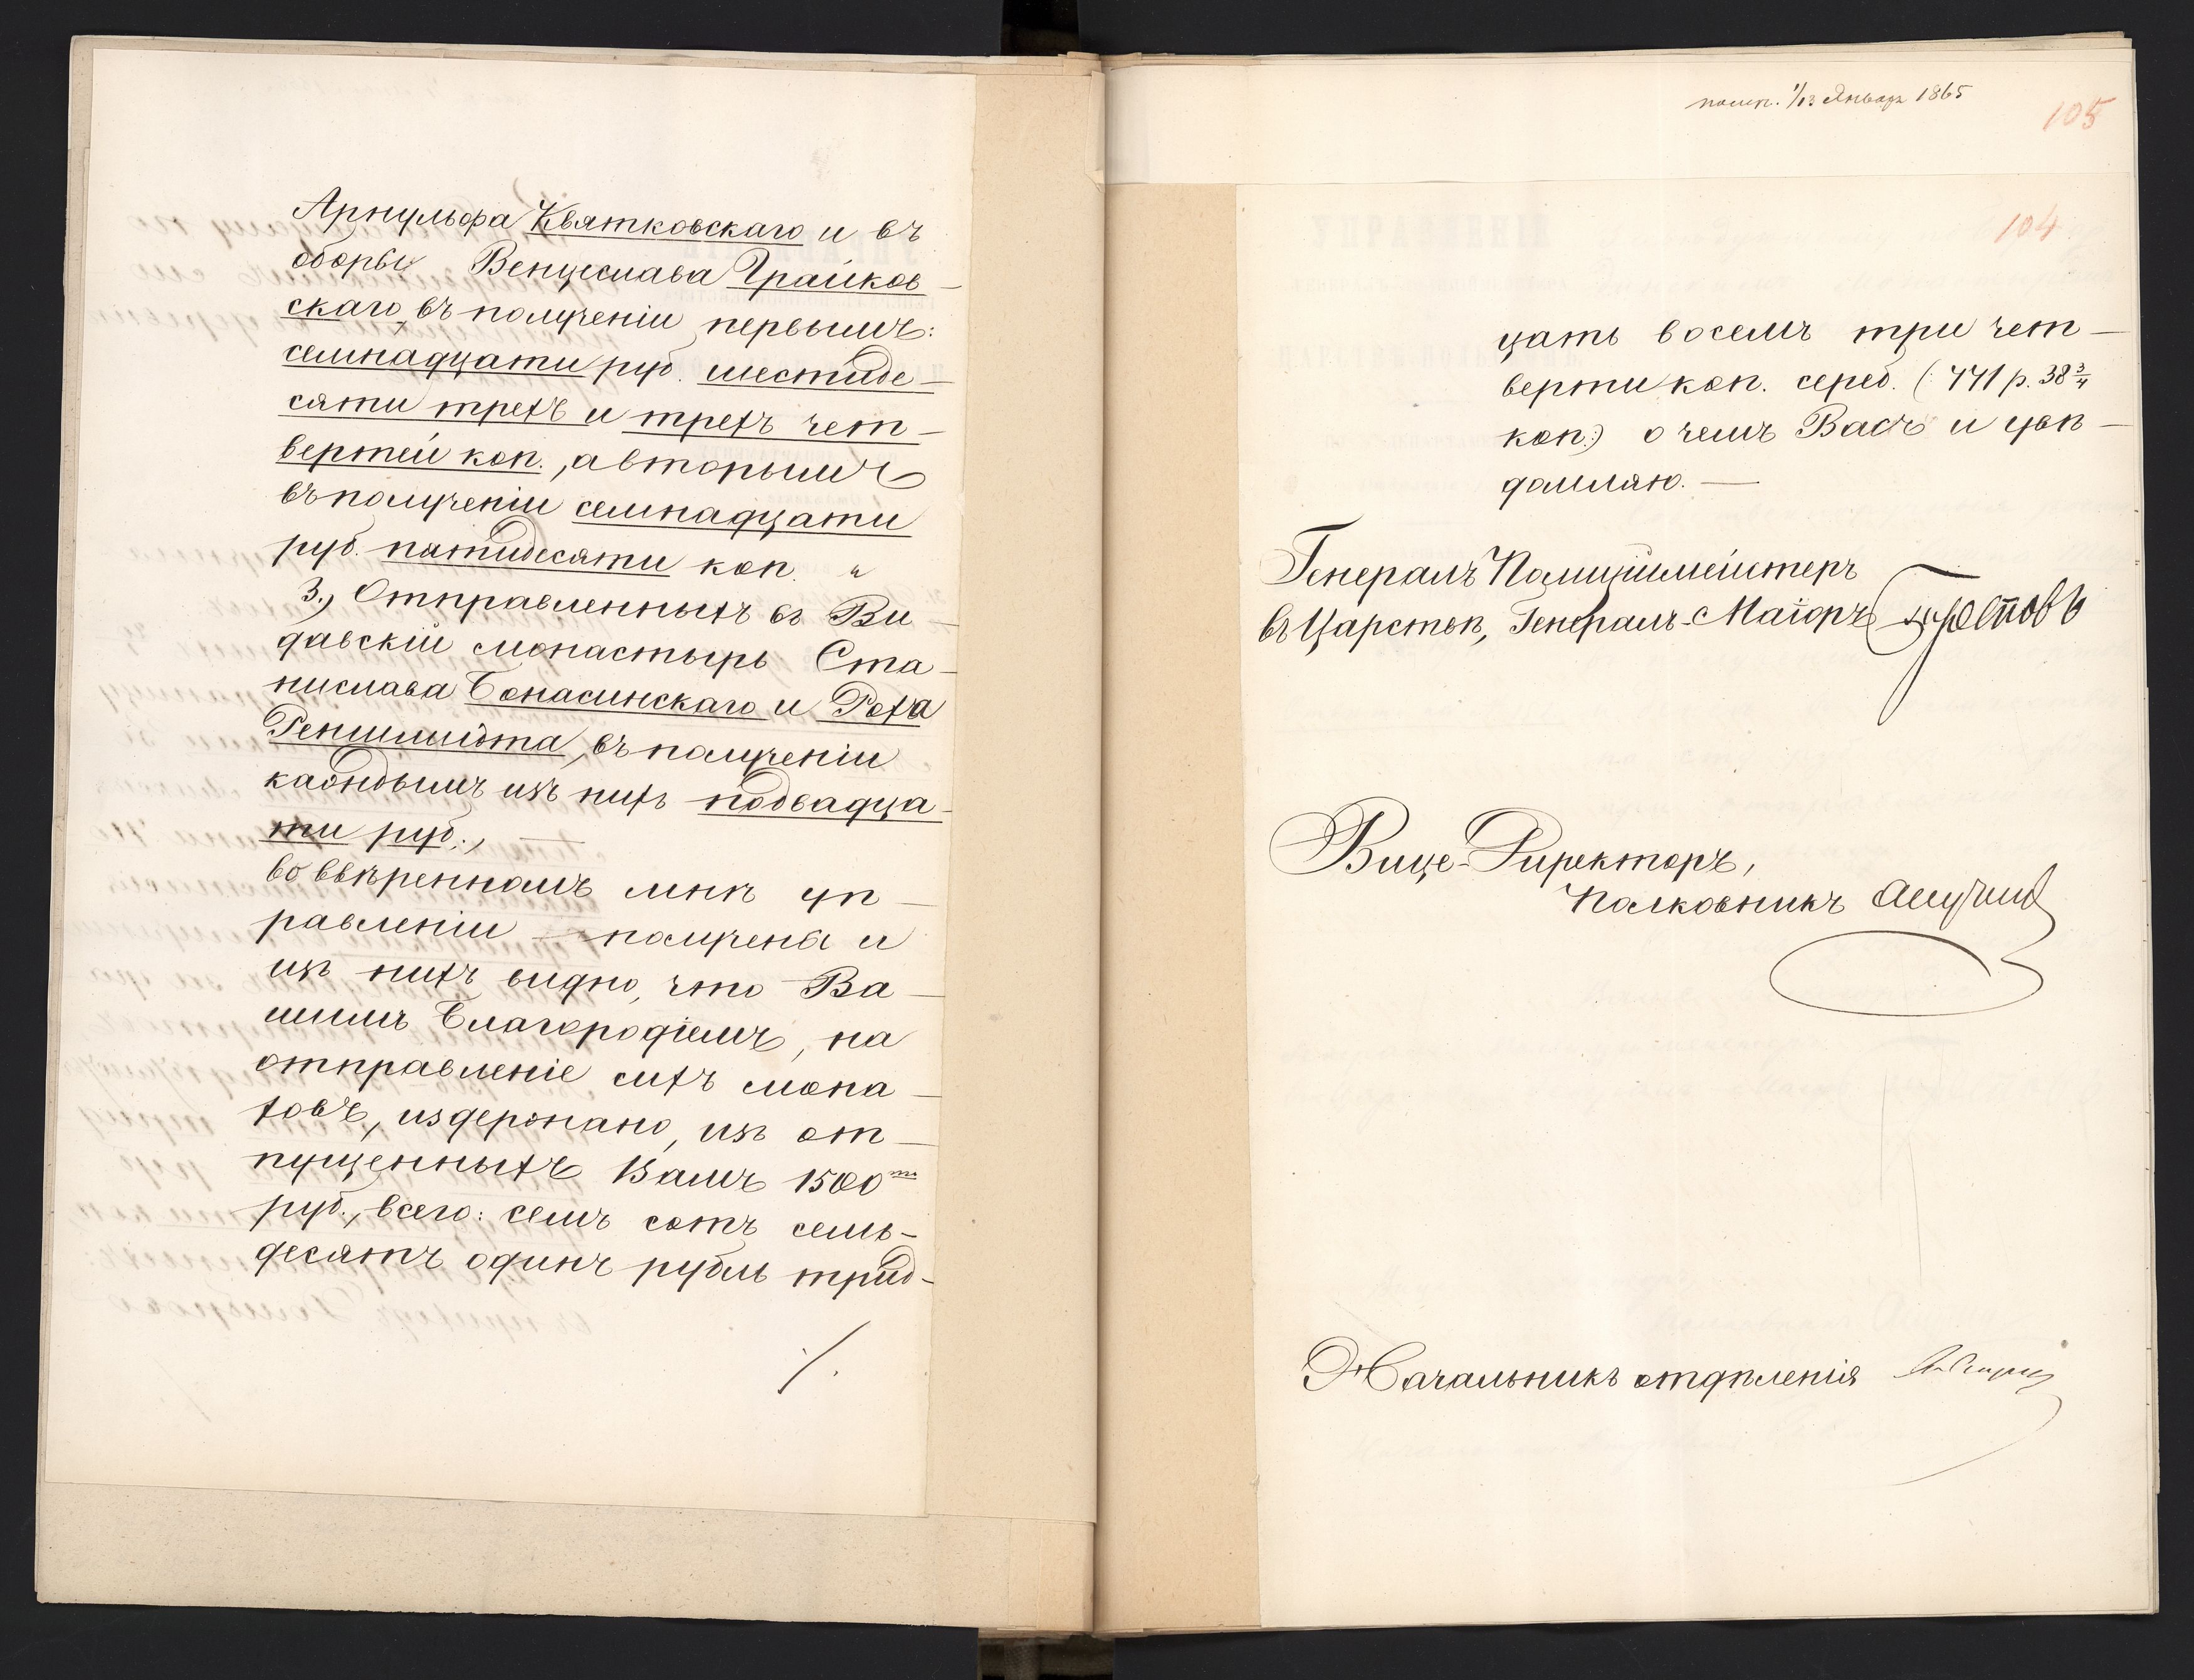 Арнульфа Квятковскаго и въ
оборы Венцеслава Грайков-
скаго, въ полученіи первымъ:
семнадцати руб. шестиде-
сяти трехъ и трехъ чет-
вертей коп., а вторымъ
въ полученіи семнадцати
руб. пятидесяти коп. "
3., Отправленныхъ въ Ви-
давскій монастырь Ста-
нислава Бонасинскаго и Роха
Реншмидта, въ полученіи
каждымъ изъ нихъ по двадца-
ти руб., —
во ввѣренномъ мнѣ уп-
равленіи — получена и
изъ нихъ видно, что Ва-
шимъ Благородіемъ, на
отправленіе сихъ мона-
ховъ, издержано, изъ от-
пущенныхъ Вамъ 1500 тъ
руб., всего: семъ сотъ семь-
десятъ одинъ рубль трид-
./.
получ. 1/13 Января 1865
105
104
цать восемъ три чет-
верти коп. сереб. (: 771 р. 38 3/4
коп:) о чемъ Васъ и увѣ-
домляю. —
Генералъ Полиціймейстеръ
въ Царствѣ, Генералъ-Маіоръ Треповъ
Вице-Директоръ,
Полковникъ
Начальникъ отдѣленія